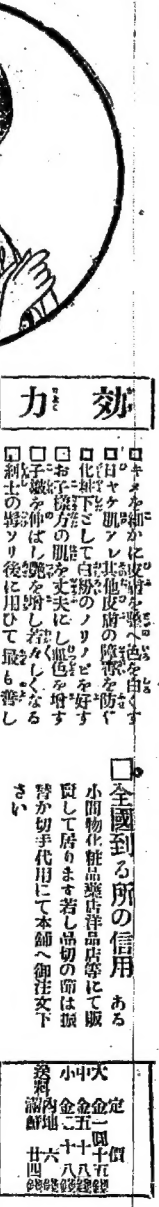 効力
□キメを細かに皮膚を整へ色を白くす
□日ヤケ肌アレ其他皮膚の障害を防ぐ
□化粧下として白粉のノリノビを好す
□お子様方の肌を丈夫にし血色を増す
□子皺を伸ばし艶を増し若々しくなる
□紳士の髯ソリ後に用ひて最も善し
□全國到る所の信用ある
小間物化粧品藥店洋品店等にて販
賣して居ります若し品切の節は振
替か切手代用にて本舗へ御注文下
さい
定價
大 金一圓十五錢
中 金五十八錢
小 金二十八錢
送料 内地 六錢
滿鮮 廿四錢